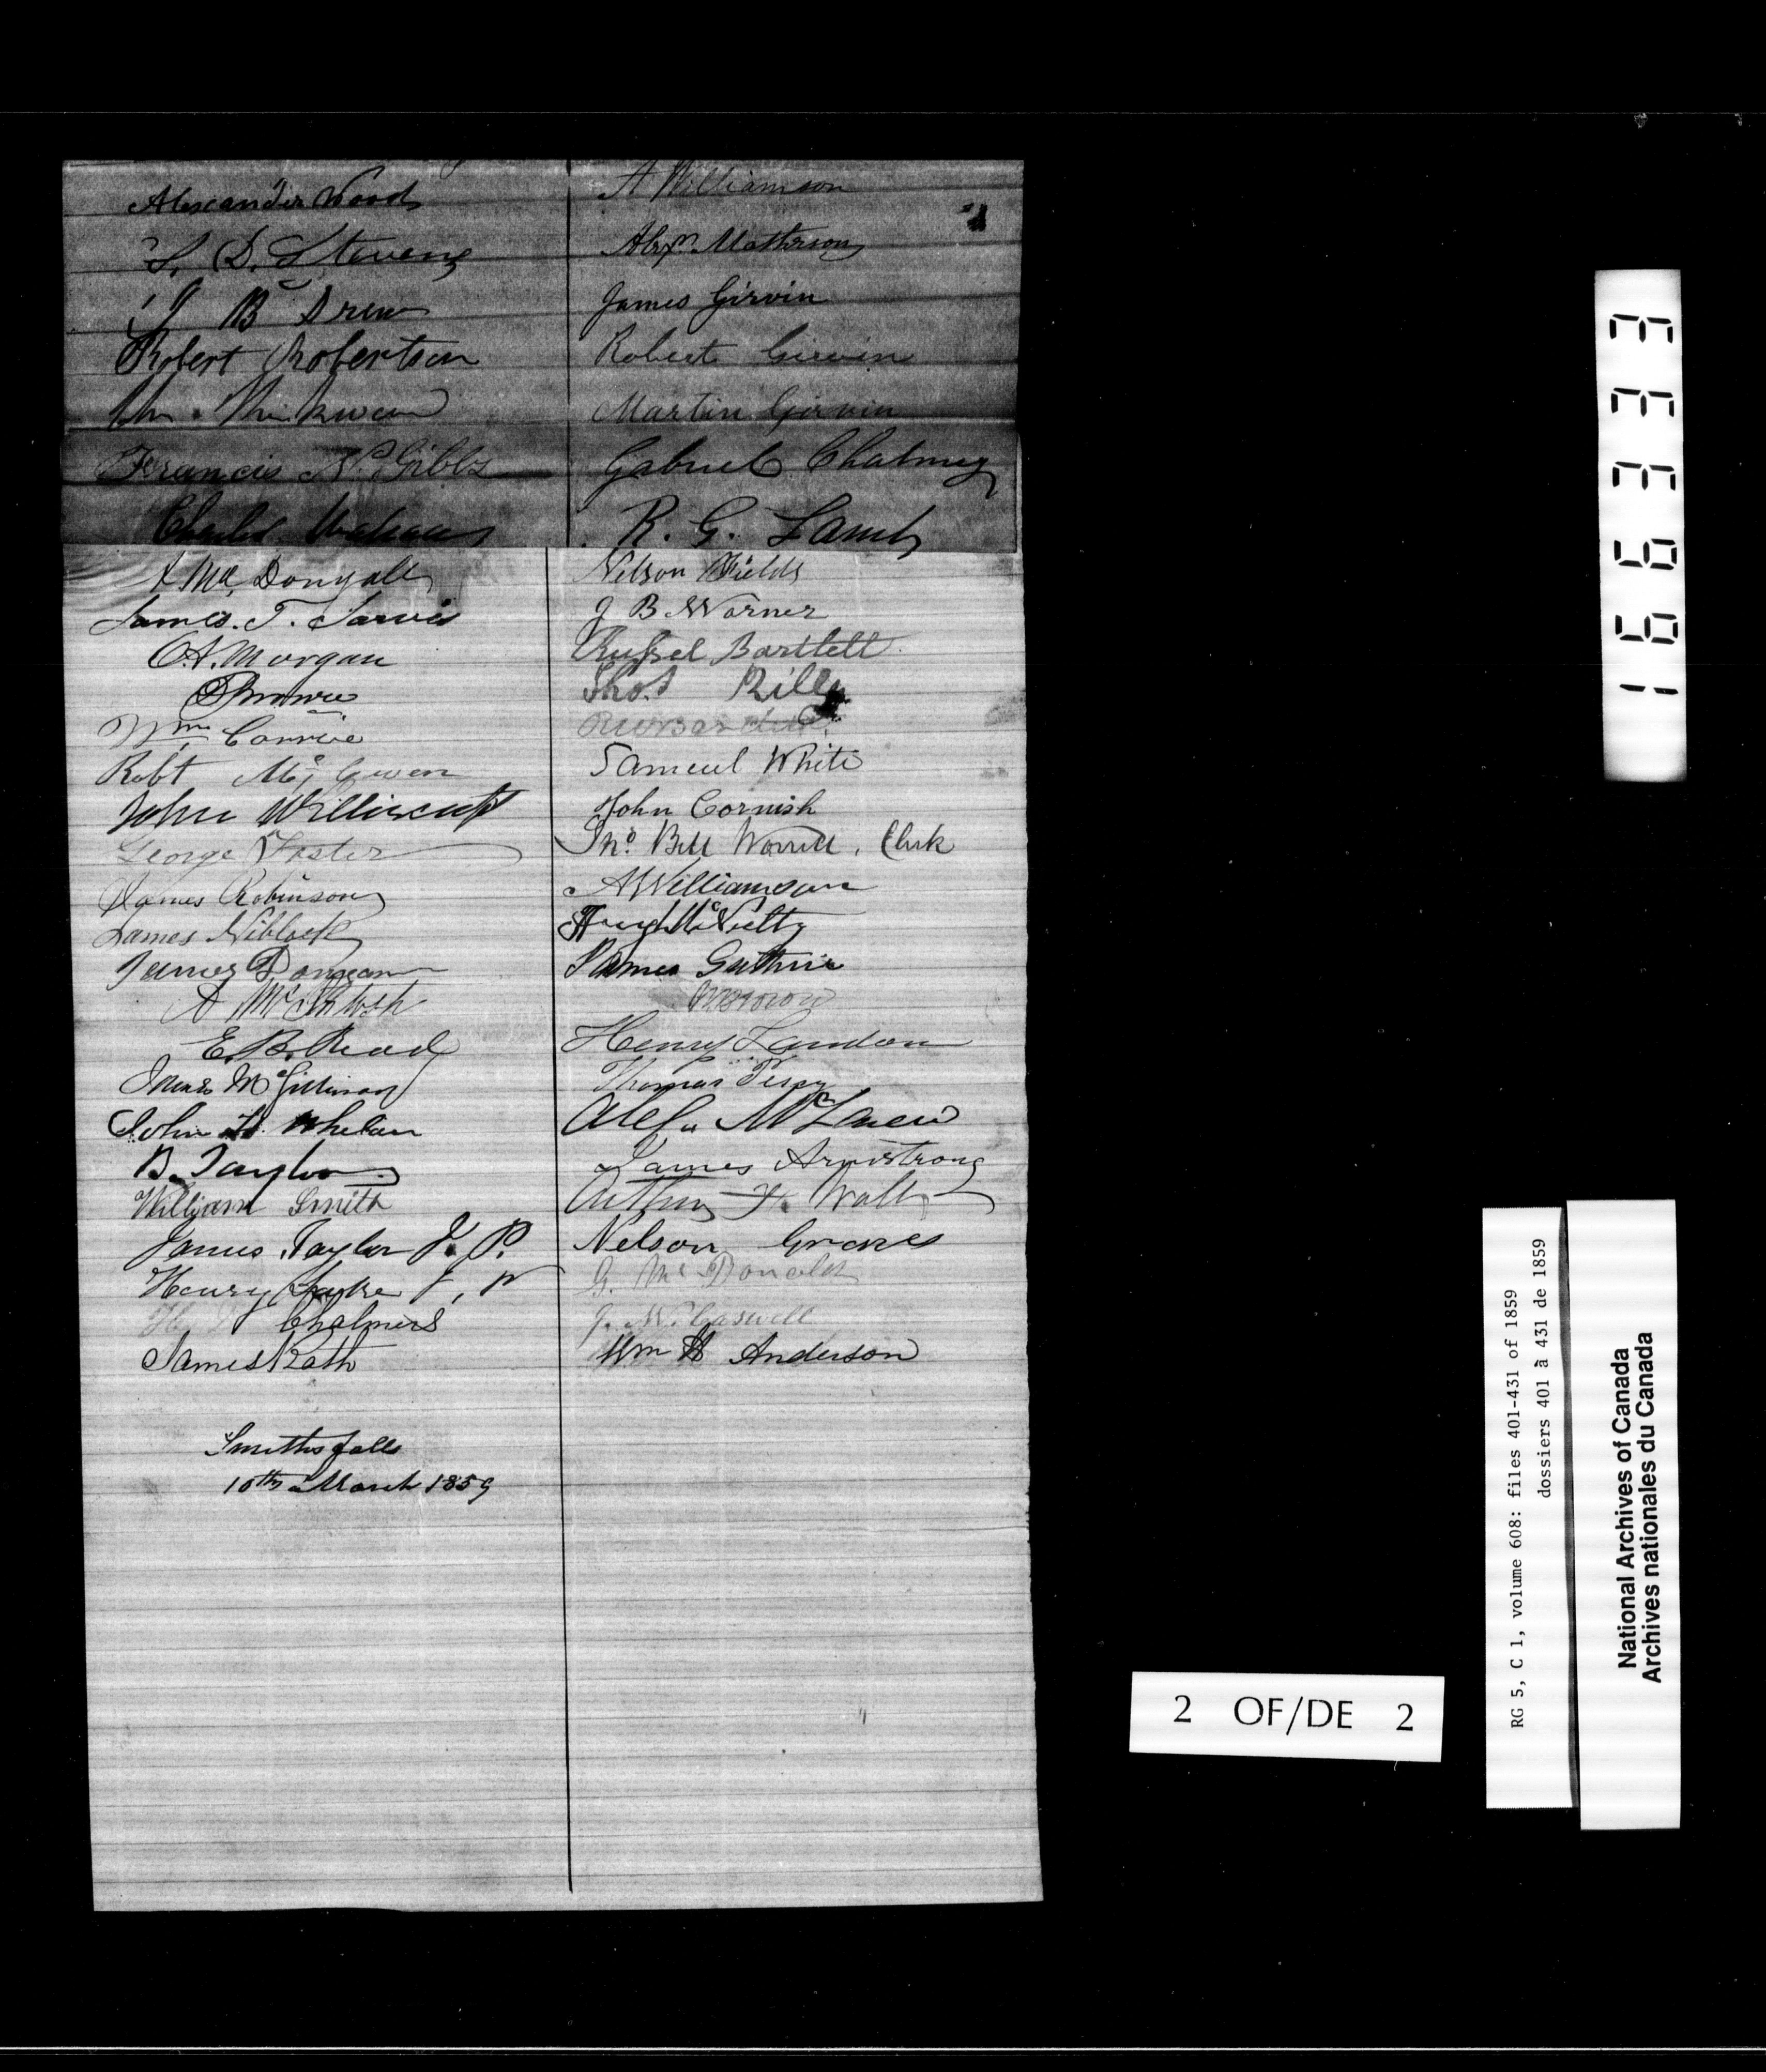 Alexander Wood
S. D. Stevens
J B Drew
Robert Robertson
Francis N. Gibbs
Charles
A Mc Dougall
James. T. Jarvis
A. Morgan
Brown
Wm Corrie
Robt Mc Ewen
John Williscroft
George Foster
James Robinson
James Niblock
James Dongean
A McIntosh
E. B. Read
James McGillivray
John H. Whelan
B. Taylor
William Smith
James Taylor J. P.
Henry J, P
Chalmers
James Rath
Smiths falls
10th March 1859
A Williamson
Alexr. Matheson
James Girvin
Robert Girvin
Martin Girvin
Gabriel Chalmers
R. G. Lamb
Nelson Fields
J B Warner
Russel Bartlett
Thos Rilly
Sameul White
John Cornish
Tho. Bell Worrell, Clerk
A Williamson
Hugh McVeilty
James Guthrie
Henry Landon
Thomas Percy
Alex McLaren
James Armstrong
Arthur F. Wall
Nelson Graves
G. Mc Donald
J. W. Caswell
Wm H Anderson
166333
RG 5, C 1, volume 608: files 401-431 of 1859
dossiers 401 à 431 de 1859
National Archives of Canada
Archives nationales du Canada
2 OF/DE 2